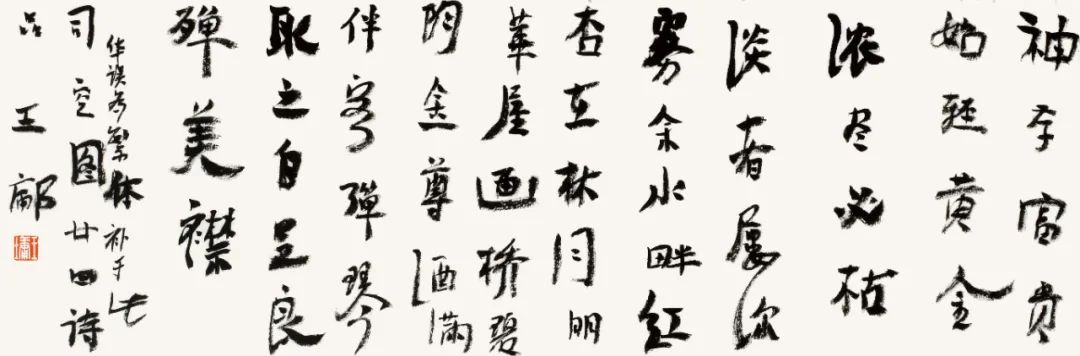 神存富贵
始轻黄金
浓尽必枯
淡者屡深
雾余水畔红
杏在林月明
華屋画桥碧
阴金尊酒满
伴客弹琴
取之自足良
殚美襟
华误为繁体补于此
司空图廿四诗
品 王鄘